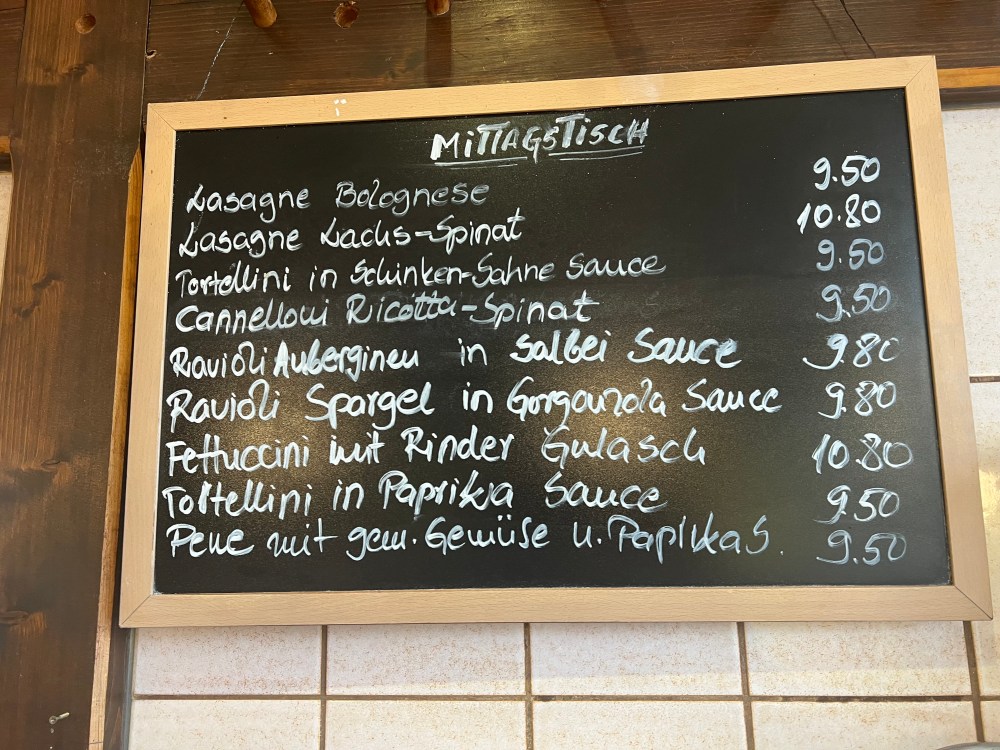 MITTAGSTISCH
Lasagne Bolognese 9.50
Lasagne Lachs-Spinat 10.80
Tortellini in Schinken-Sahne Sauce 9.50
Cannelloni Ricotta-Spinat 9.50
Ravioli Auberginen in Salbei Sauce 9.80
Ravioli Spargel in Gorgonzola Sauce 9.80
Fettuccini mit Rinder Gulasch 10.80
Tortellini in Paprika Sauce 9.50
Pene mit gem. Gemüse u. Paprika S. 9.50